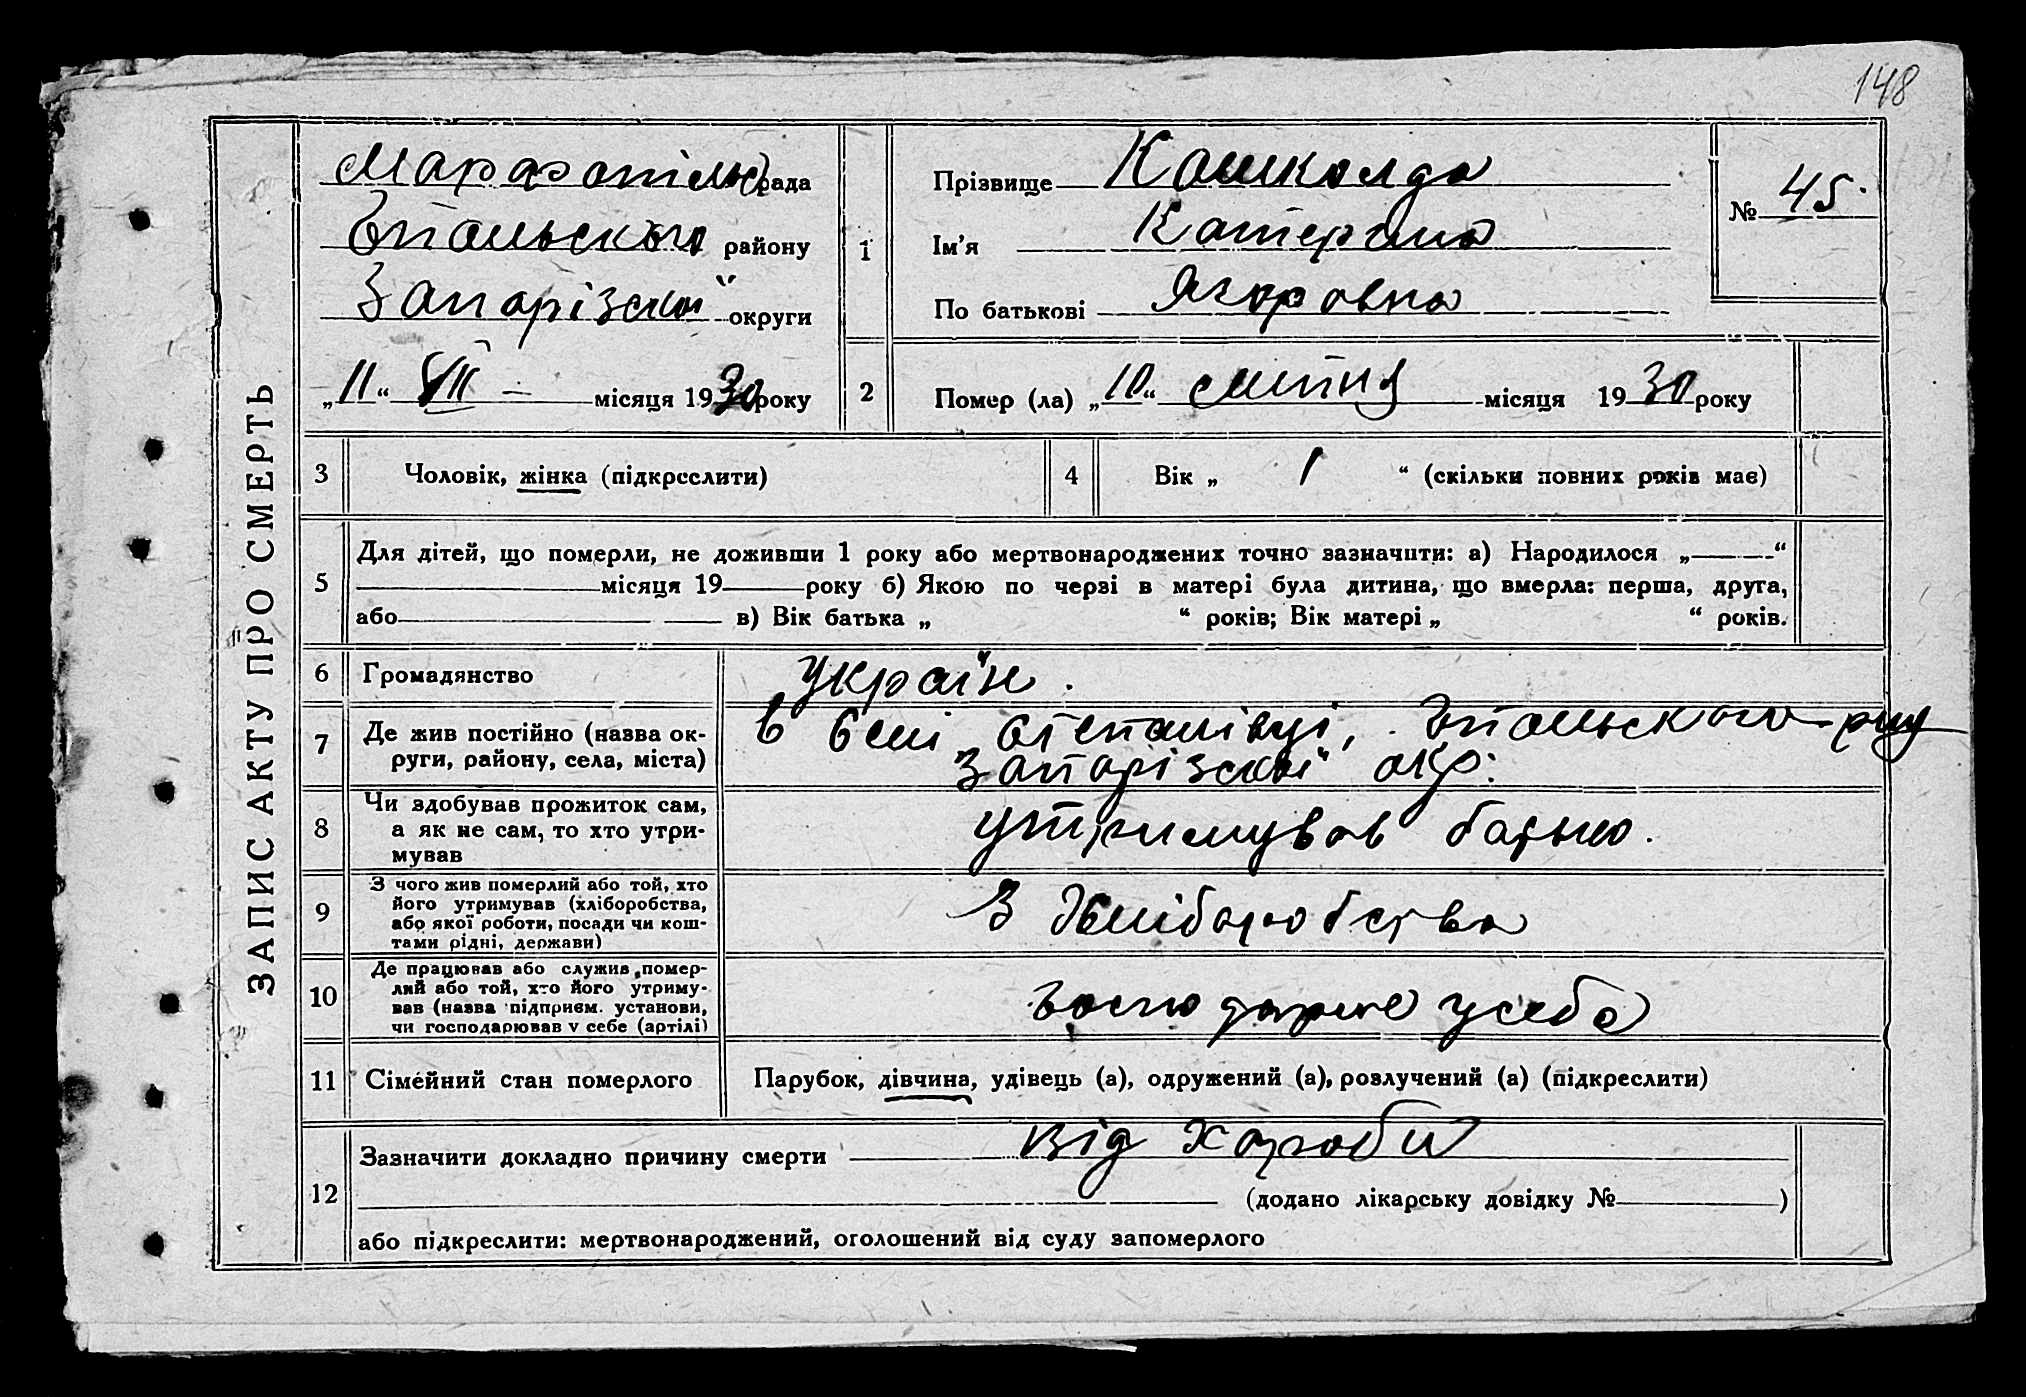 148
ЗАПИС АКТУ ПРО СМЕРТЬ
рада
району
Запорізської округи
„11“ VII місяця 1930 року
1
Прізвище Кошколда
Ім’я Катерина
По батькові Ягоровна
№ 45.
2 Помер (ла) „10“ липня місяця 1930 року
3 Чоловік, жінка (підкреслити)
4 Вік „ 1 “ (скільки повних років має)
5 Для дітей, що померли, не доживши 1 року або мертвонароджених точно зазначити: а) Народилося „——“
місяця 19 року б) Якою по черзі в матері була дитина, що вмерла: перша, друга,
або в) Вік батька „ “ років; Вік матері „ “ років.
6 Громадянство україн.
7 Де жив постійно (назва ок-
руги, району, села, міста)
в селі Степанівці,
Запорізської окр.
8 Чи здобував прожиток сам,
а як не сам, то хто утри-
мував
утримував батько.
9 З чого жив померлий або той, хто
його утримував (хліборобства,
або якої роботи, посади чи кош-
тами рідні, держави)
З хліборобства
10 Де працював або служив помер-
лий або той, хто його утриму-
вав (назва підприєм. установи,
чи господарював у себе (артілі)
господарює у себе
11 Сімейний стан померлого Парубок, дівчина, удівець (а), одружений (а), розлучений (а) (підкреслити)
12 Зазначити докладно причину смерти від хороби
(додано лікарську довідку № )
або підкреслити: мертвонароджений, оголошений від суду запомерлого